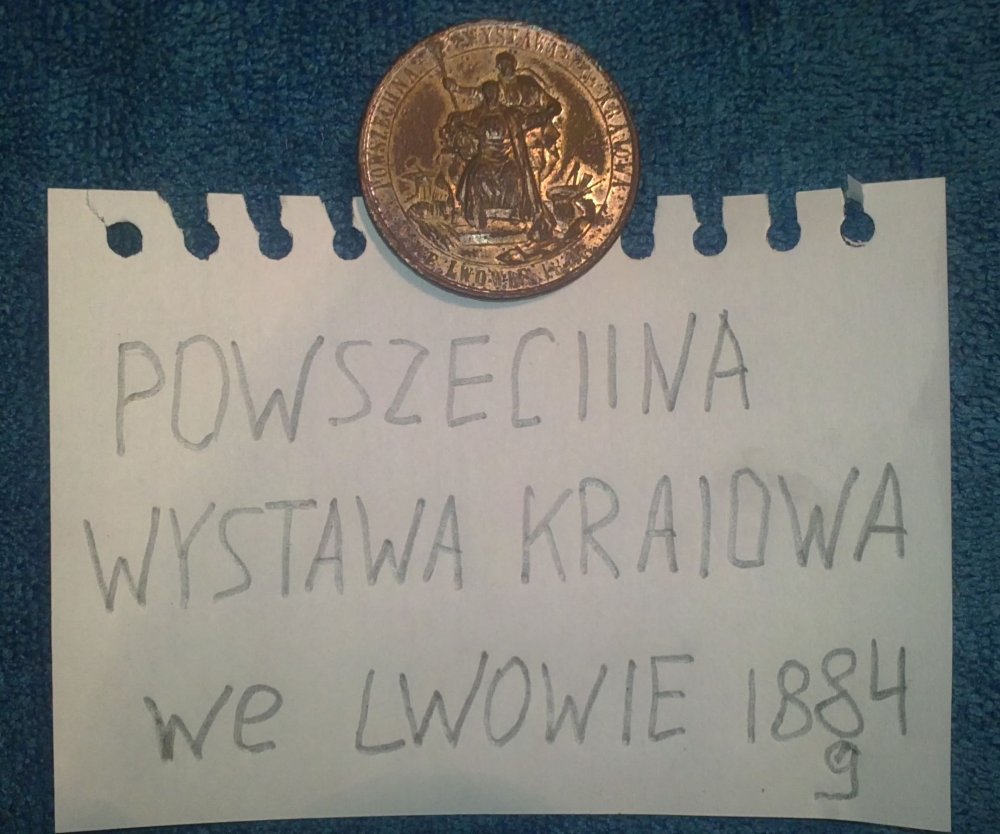 POWSZECHNA WYSTAWA KRAIOWA
WE LWOWIE
POWSZECIINA
WYSTAWA KRAIOWA
we LWOWIE 1884
9